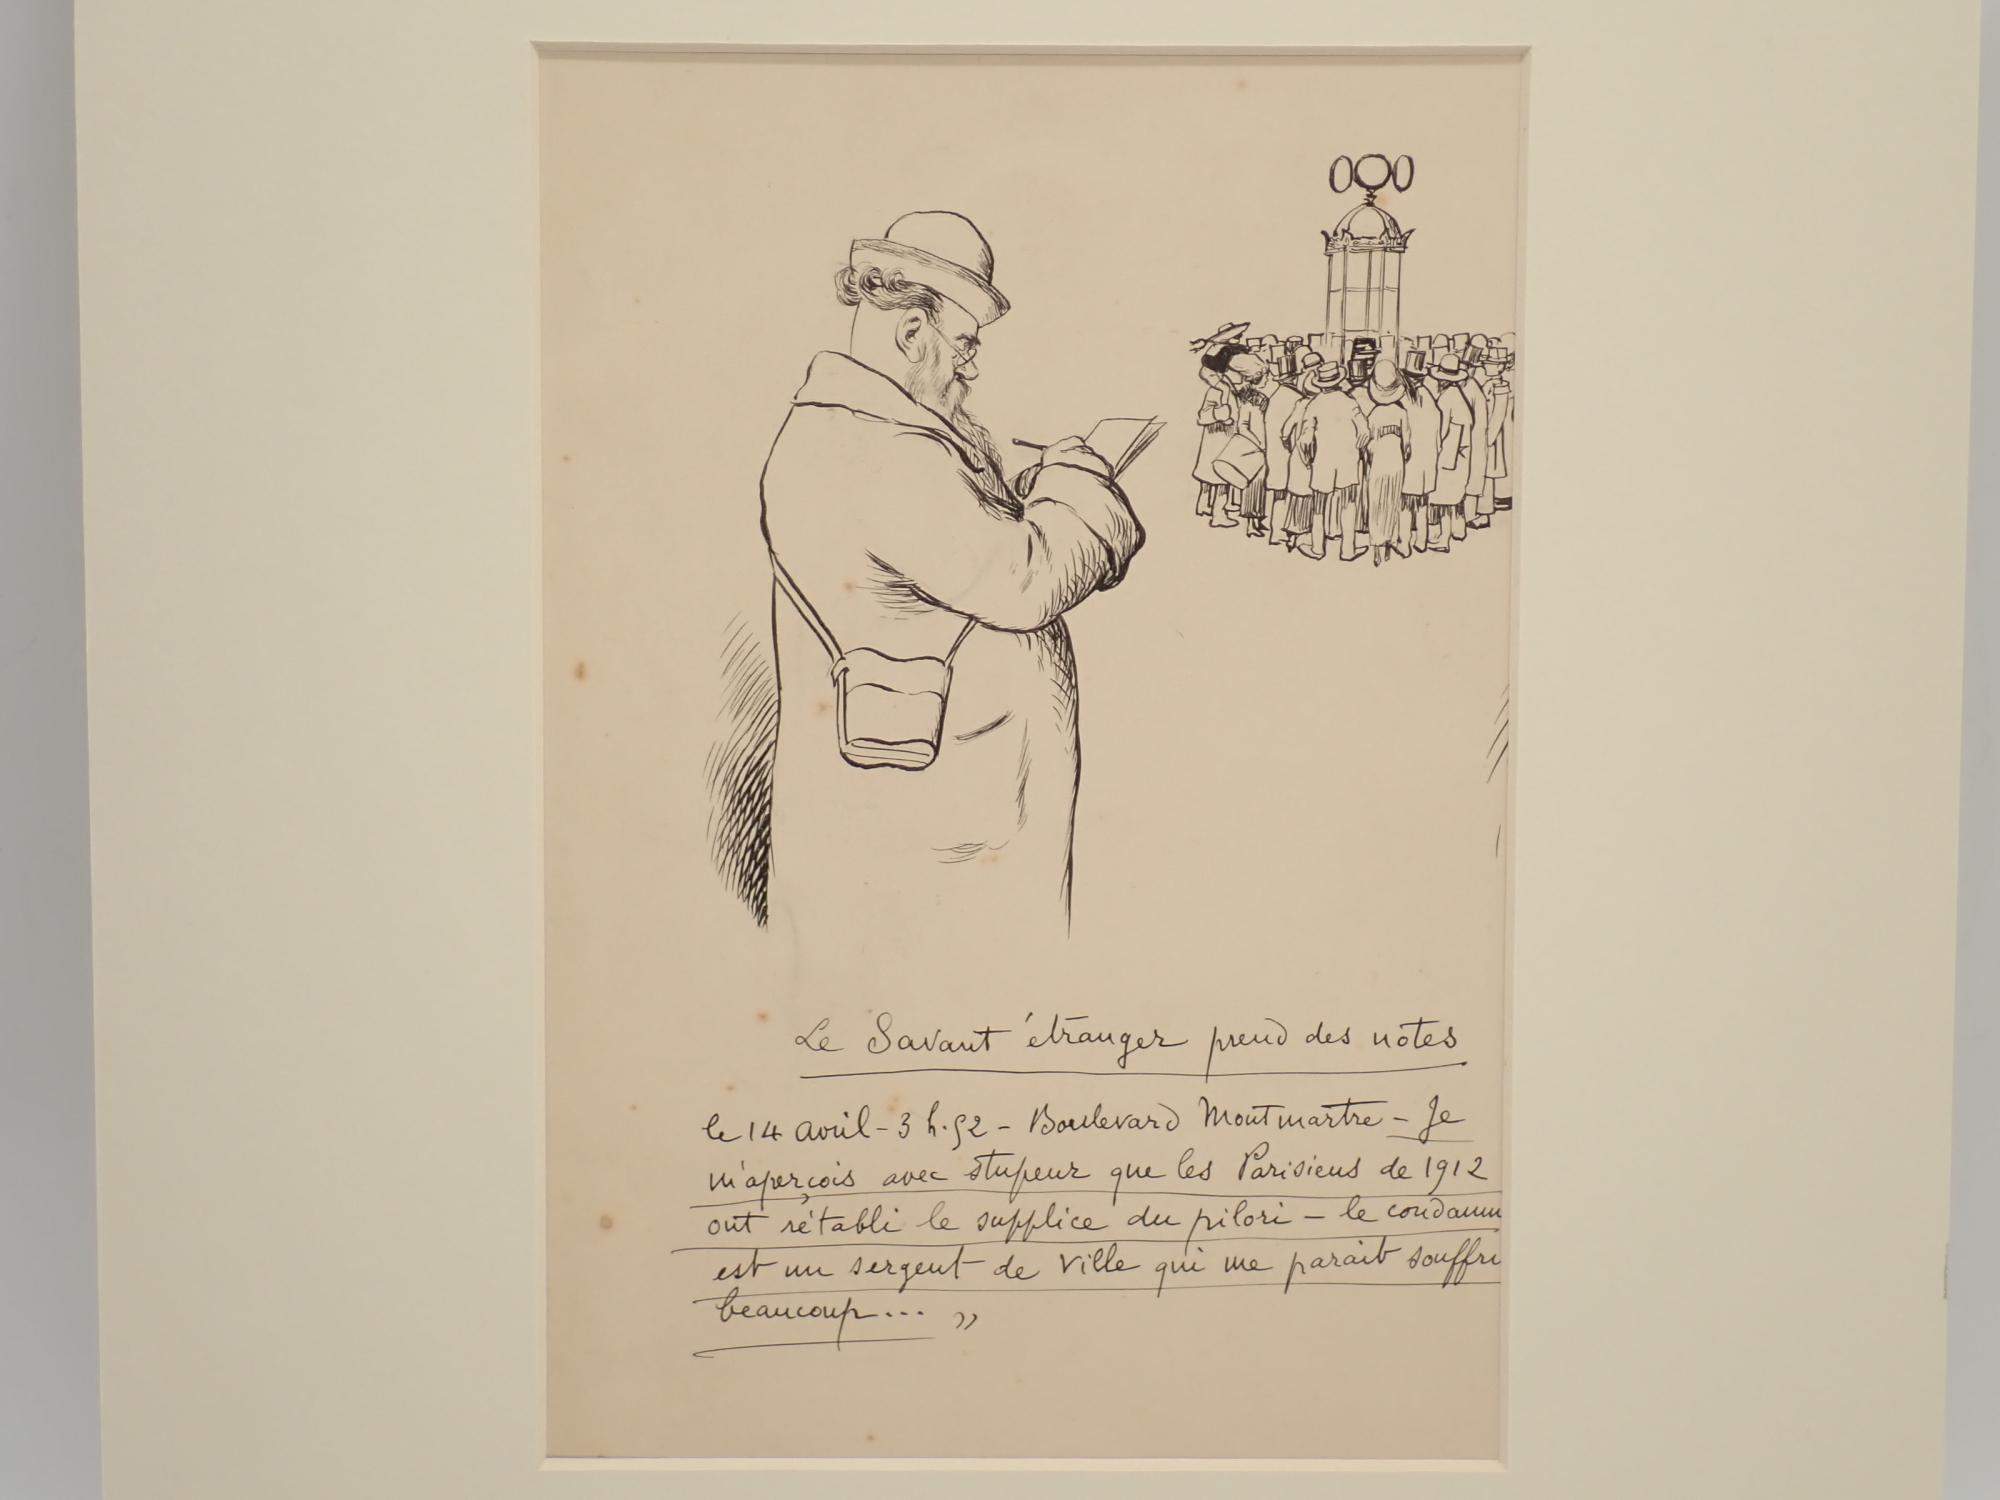 Le Savant étranger prend des notes
le 14 avril - 3 h. 52 - Boulevard Montmartre - Je
m'aperçois avec stupeur que les Parisiens de 1912
ont rétabli le supplice du pilori - le condamn
est un sergent de ville qui me parait souffri
beaucoup... »